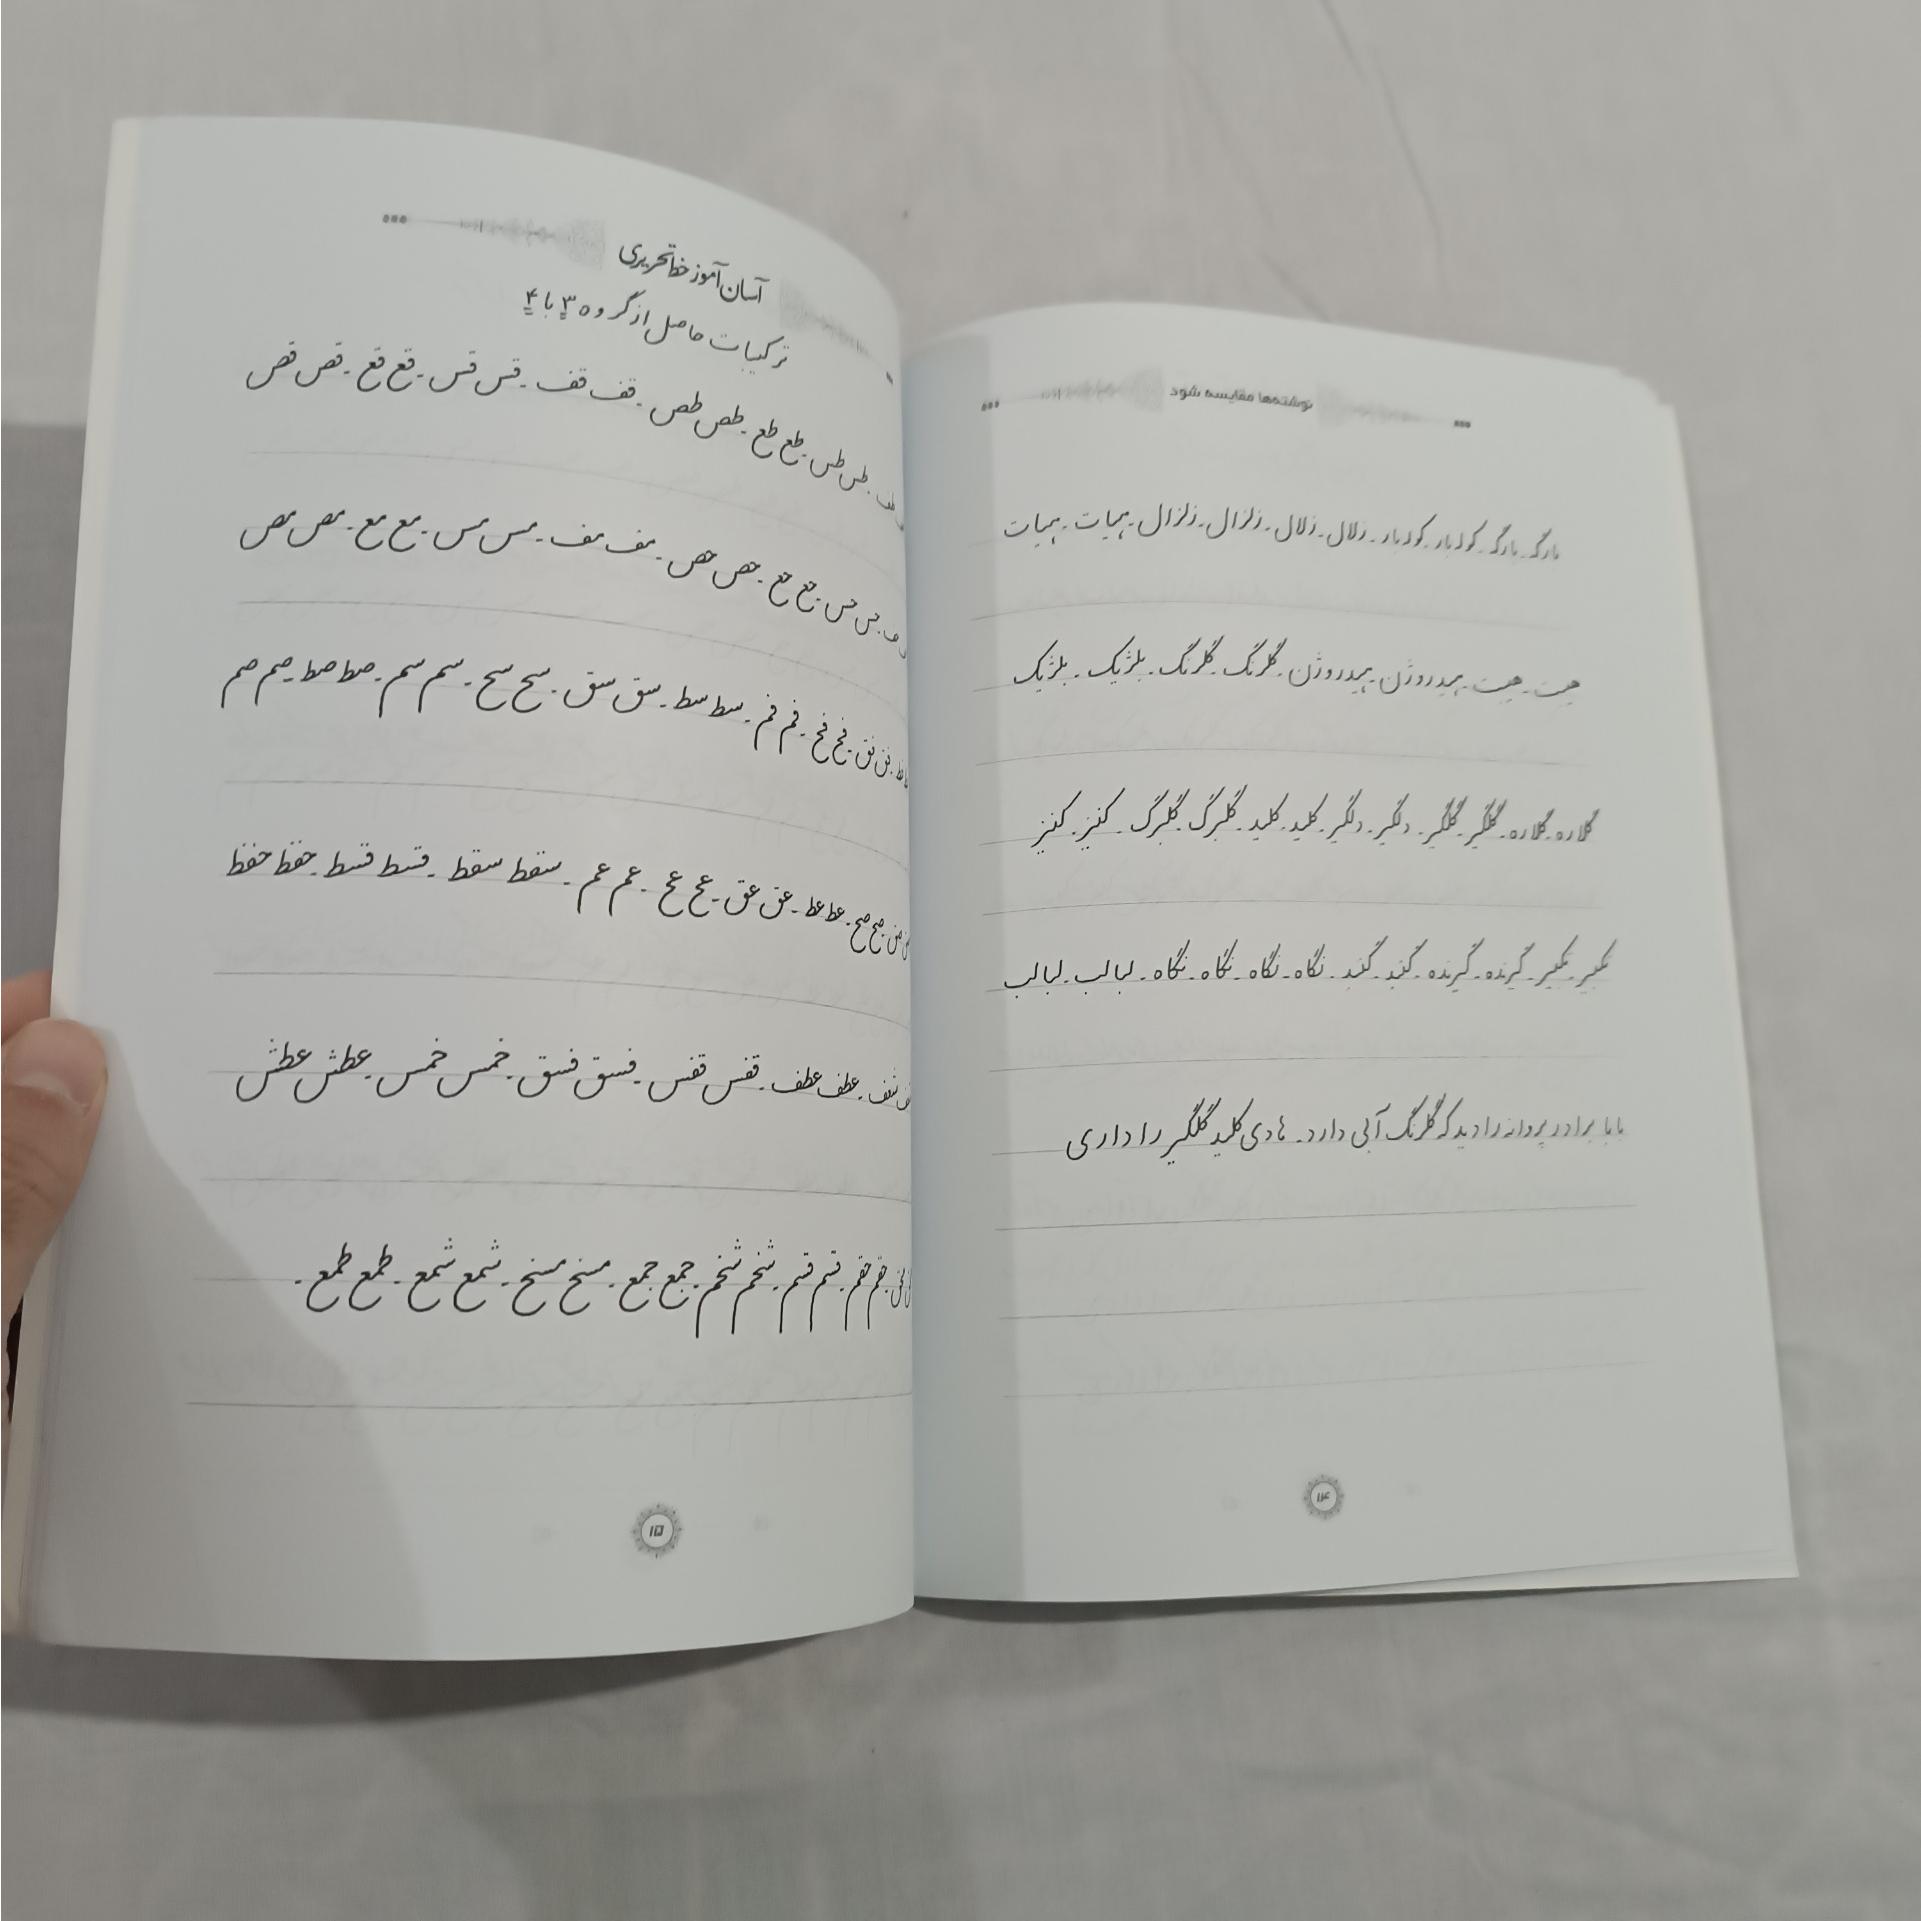 نوشته‌ها مقایسه شود
گودبار. گودبار. زلال. زلال. زلزال. زلزال. هیهات. هیهات
هیدروژن. هیدروژن. گلرنگ. گلرنگ. بلژیک. بلژیک
گلاره. گلاره. گلگیر. گلگیر. دلگیر. دلگیر. کلید. کلید. گلبرگ. گلبرگ. کنیز. کنیز
گیرنده. گیرنده. گنبد. گنبد. نگاه. نگاه. نگاه. نگاه. لبالب. لبالب
بابا برادر پروانه را دید که گلرنگ آبی دارد. هادی کلید گلگیر را داری
۱۴
آسان آموز خط تحریری
ترکیبات حاصل از گروه ۳ با ۴
طس طس. طع طع. طص طص. قف قف. قس قس. قع قع. قص قص
حس حس. حع حع. حص حص. مف مف. مس مس. مع مع. مص مص
فق فق. فح فح. فم فم. سط سط. سق سق. سح سح. سم سم. صط صط. صم صم
صح صح. عط عط. عق عق. عح عح. عم عم. سقط سقط. قسط قسط. حفظ حفظ
عطف عطف. قفس قفس. فسق فسق. خمس خمس. عطش عطش
قسم قسم. شخم شخم. جمع جمع. مسخ مسخ. شمع شمع. طمع طمع.
۱۵